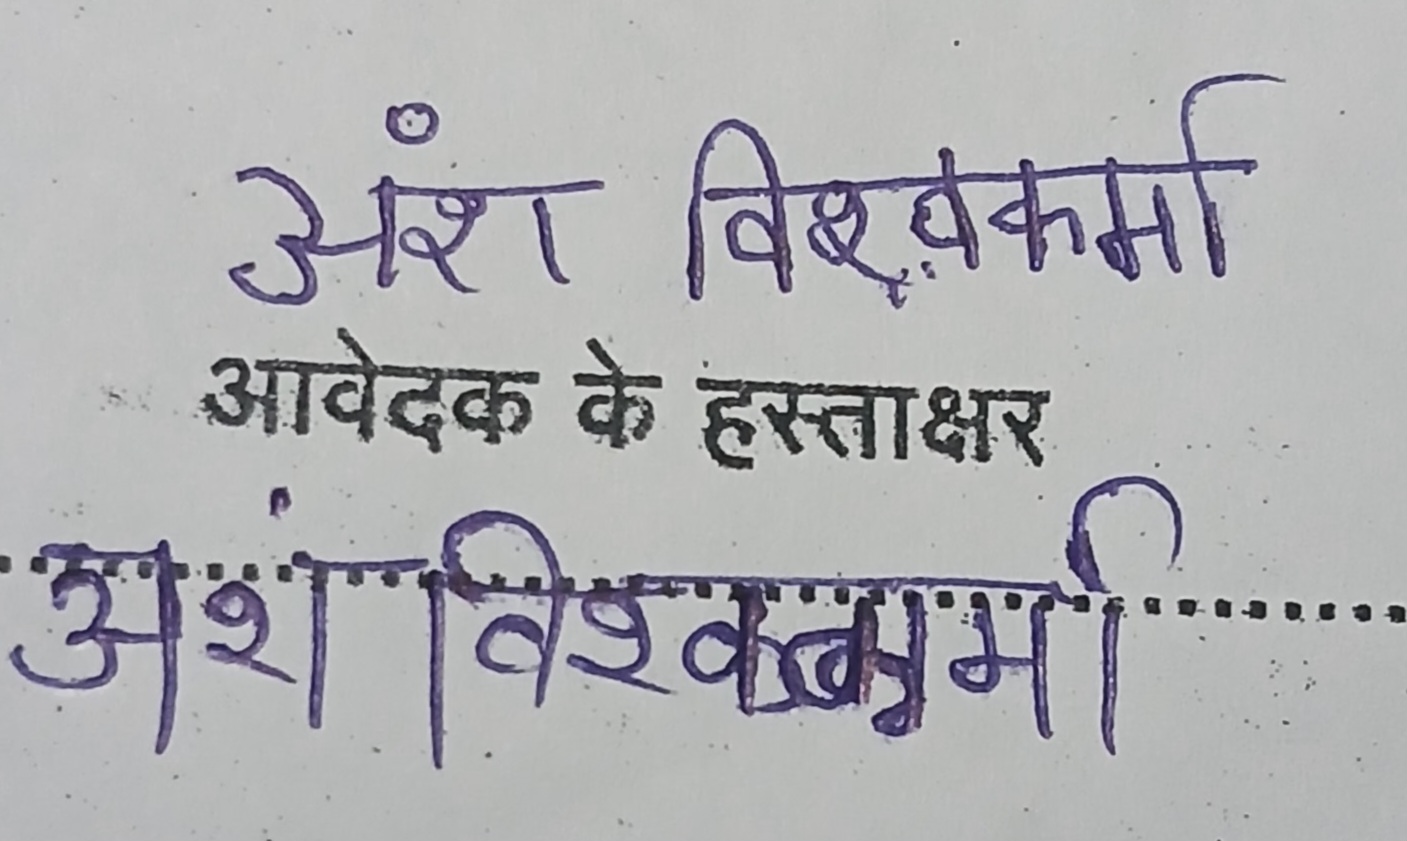 अंश विश्वकर्मा
आवेदक के हस्ताक्षर
अशं विश्वकर्मा